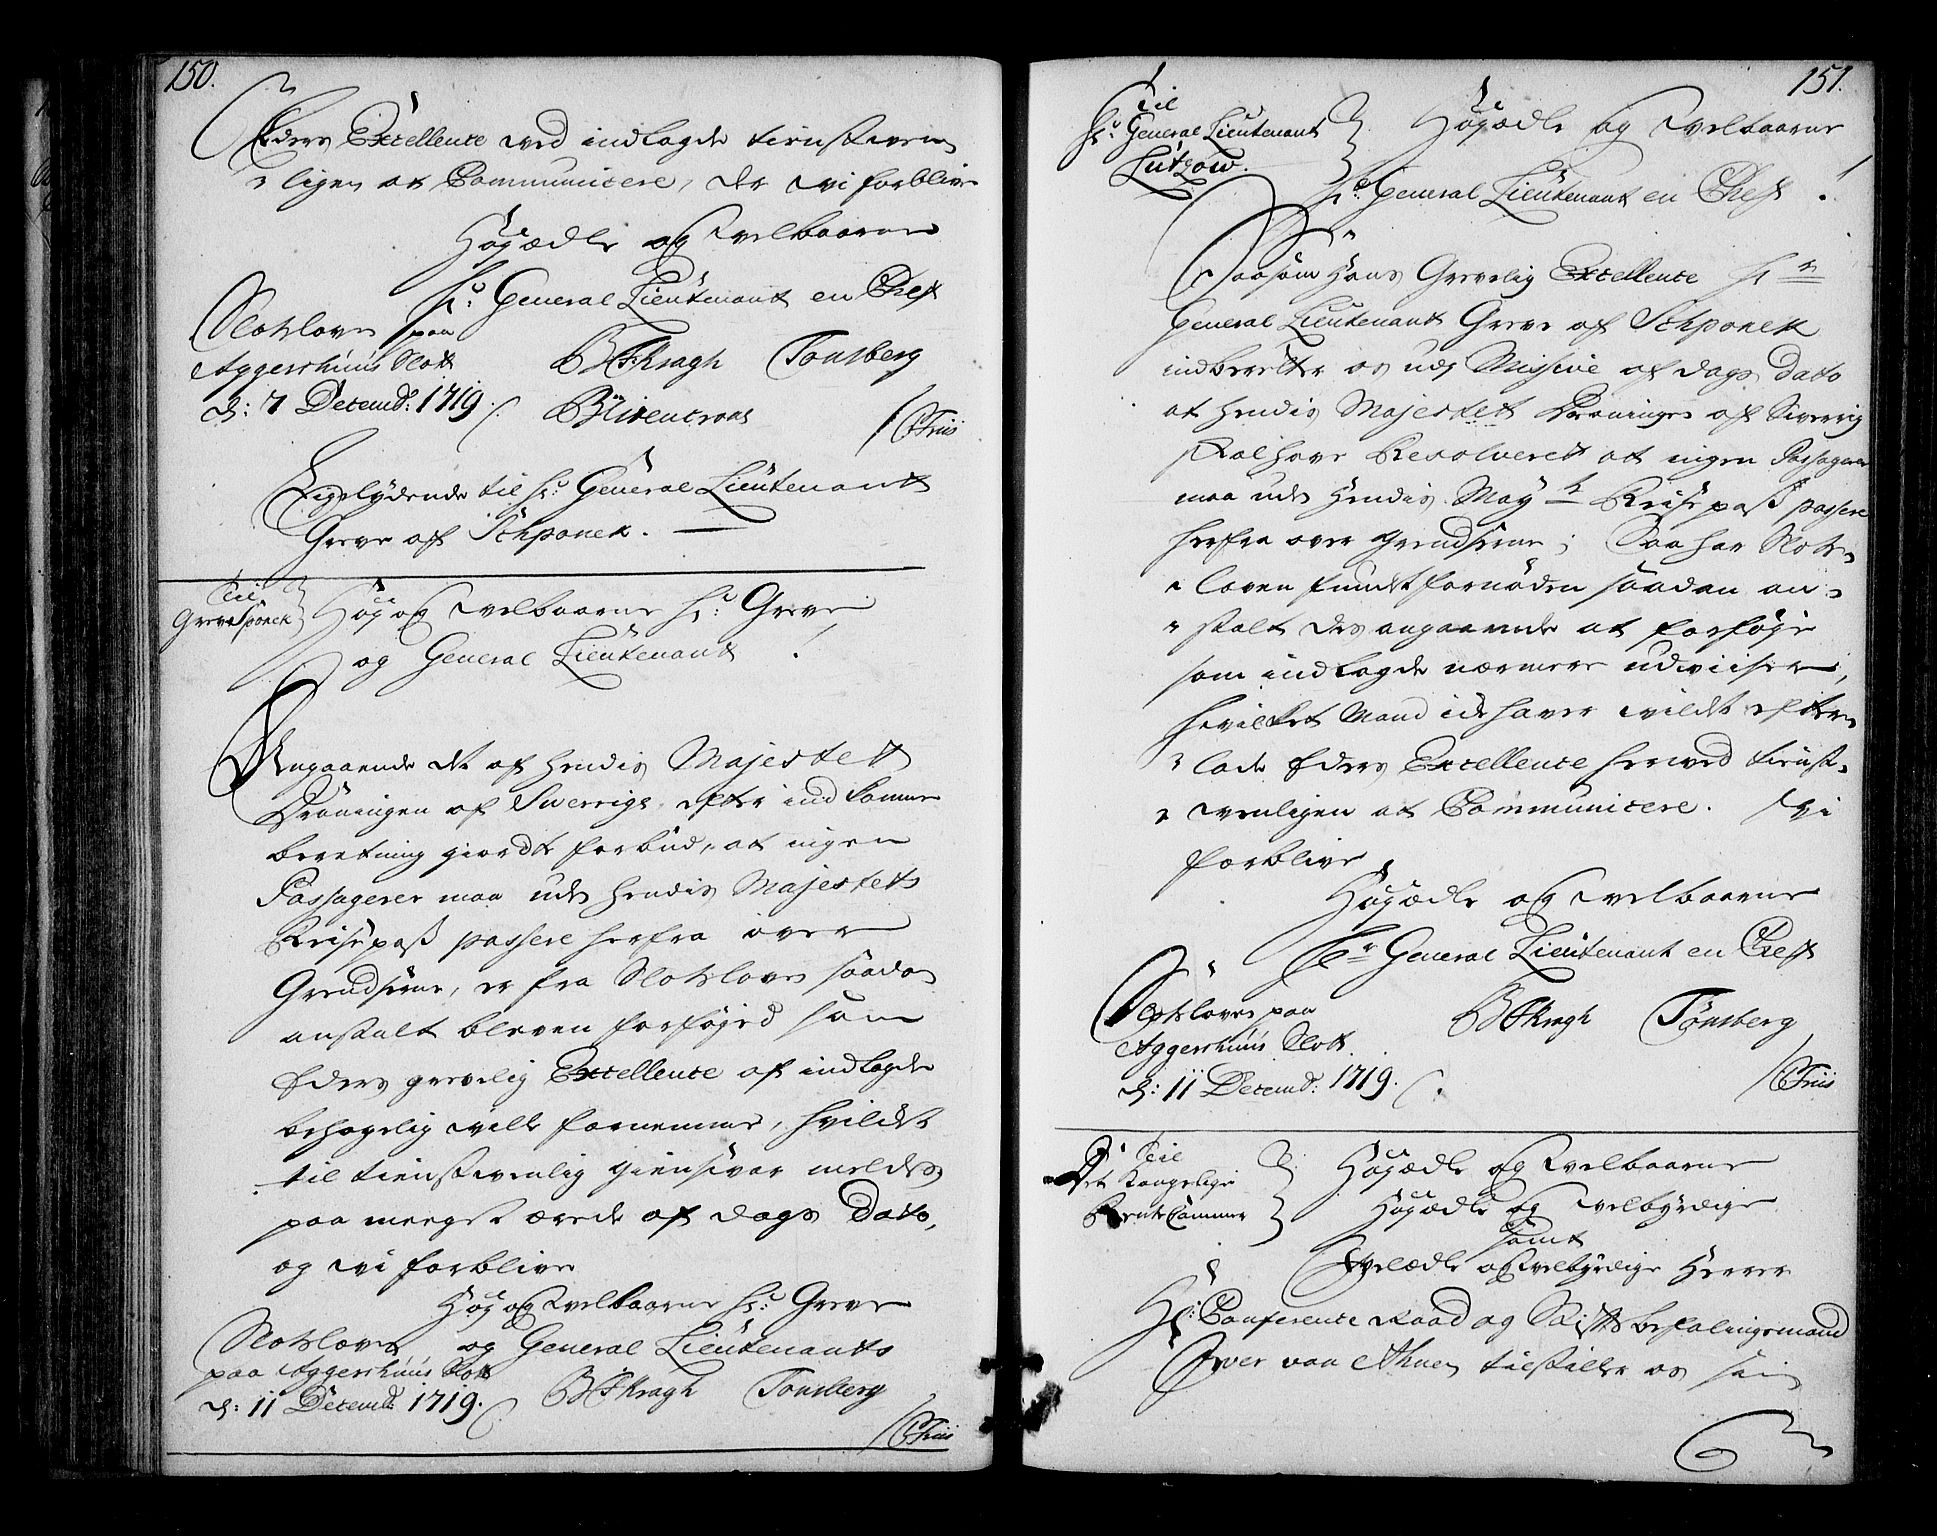 150.
Eders Excellence ved indlagde tienstven
ligen at Communicere, der vi forblive
Høyædle og Velbaarne
Hr: General Lieutenant en Chef
Slotsloven paa
Aggershuus Slott
d: 7 Decemb: 1719.
B H Kragh Tonsberg
B Litzencrone
/CFriis
Ligelydende til Hr: General Lieutenant
Greve af Schponek.
Til
Greve Sponek
Høy og Velbaarne Hr: Greve
og General Lieutenant !
Angaaende det af Hendis Majestet
Droningen af Sverrige, efter indkomne
beretning giordte forbud, at ingen
Passagerer maa uden Hendis Majestets
Reise pass passere herfra over
Grendserne, er fra Slotsloven saadan
anstalt bleven forføyed som
Eders grevelig Excellence af indlagde
behagelig ville fornemme, hvilket
til tienstvenlig giensvar meldes
paa meget ærede af dags Dato,
og vi forblive
Høy og Velbaarne Hr: Greve
og General Lieutenants
Slotsloven
paa Aggershuus Slott
d: 11 Decemb: 1719.
B H Kragh Tonsberg
/CFriis
151.
Til
Hr: General Lieutenant
Lützow.
Høyædle og Velbaarne
Hr: General Lieutenant en Chef !
Saasom Hans Grevelig Excellence Hr
General Lieutenant Greve af Schponek
indberetter os udj Missive af dags Dato
at Hendis Majestet Droningen af Sverrig
skal have Resolveret at ingen Passagerer
maa uden Hendis May ts Reise pass passere
herfra over Grendserne; Saa har Slots
loven fundet fornøden saadan an
stalt des angaaende at forføye
som indlagde nærmere udviiser,
hvilket Mand icke haver vildet efter
lade Eders Excellence herved tienst
venligen at Communicere. Vi
forblive
Høyædle og Velbaarne
Hr General Lieutenant en Chef
Slotsloven paa
Aggershuus Slott.
d: 11 Decemb: 1719.
B H Kragh Tønsberg
/CFriis
Til
Det Kongelige
Rente Cammer
Høyædle og Velbaarne
Høyædle og Velbyrdige
samt
Velædle og Velbyrdige Herrer
Hr: Conference Raad og Stiftsbefalingsmand
Iver von Ahnen tilstiller os sin